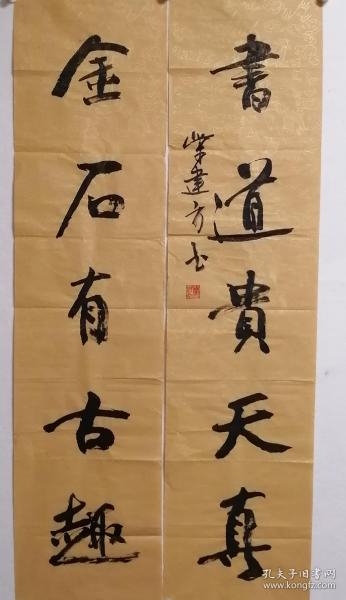 書道貴天真
金石有古趣
柴建方书
孔夫子旧书网